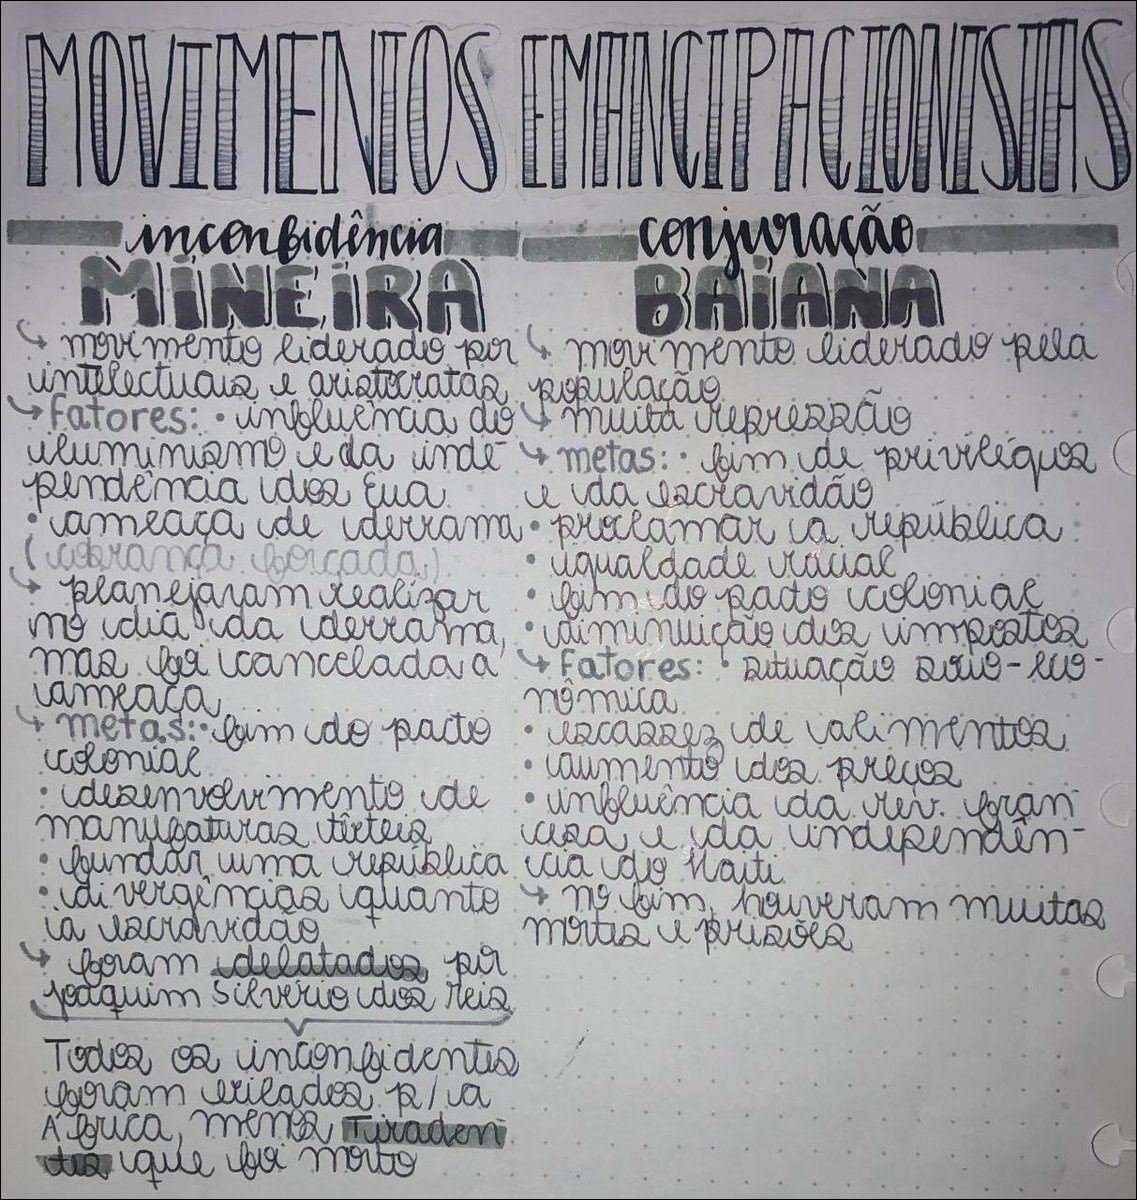 MOVIMENTOS EMANCIPACIONISTAS
inconfidência
MINEIRA
↳ movimento liderado por
intelectuais e aristocratas
↳ fatores: • influência do
iluminismo e da inde-
pendência dos Eua
• ameaça de derrama
(cobrança forçada)
↳ planejaram realizar
no dia da derrama,
mas foi cancelada a
ameaça
↳ metas: • fim do pacto
colonial
• desenvolvimento de
manufaturas têxteis
• fundar uma república
• divergências quanto
a escravidão
↳ foram delatados por
Joaquim Silvério dos Reis
Todos os inconfidentes
foram exilados p/ a
África, menos Tiraden
tes que foi morto
conjuração
BAIANA
↳ movimento liderado pela
população
↳ muita repressão
↳ metas: • fim de privilégios
e da escravidão
• proclamar a república
• igualdade racial
• fim do pacto colonial
• diminuição dos impostos
↳ fatores: • situação socio-eco-
nômica
• escassez de alimentos
• aumento dos preços
• influência da rev. fran
cesa e da independên-
cia do Haiti
↳ no fim, houveram muitas
mortes e prisões